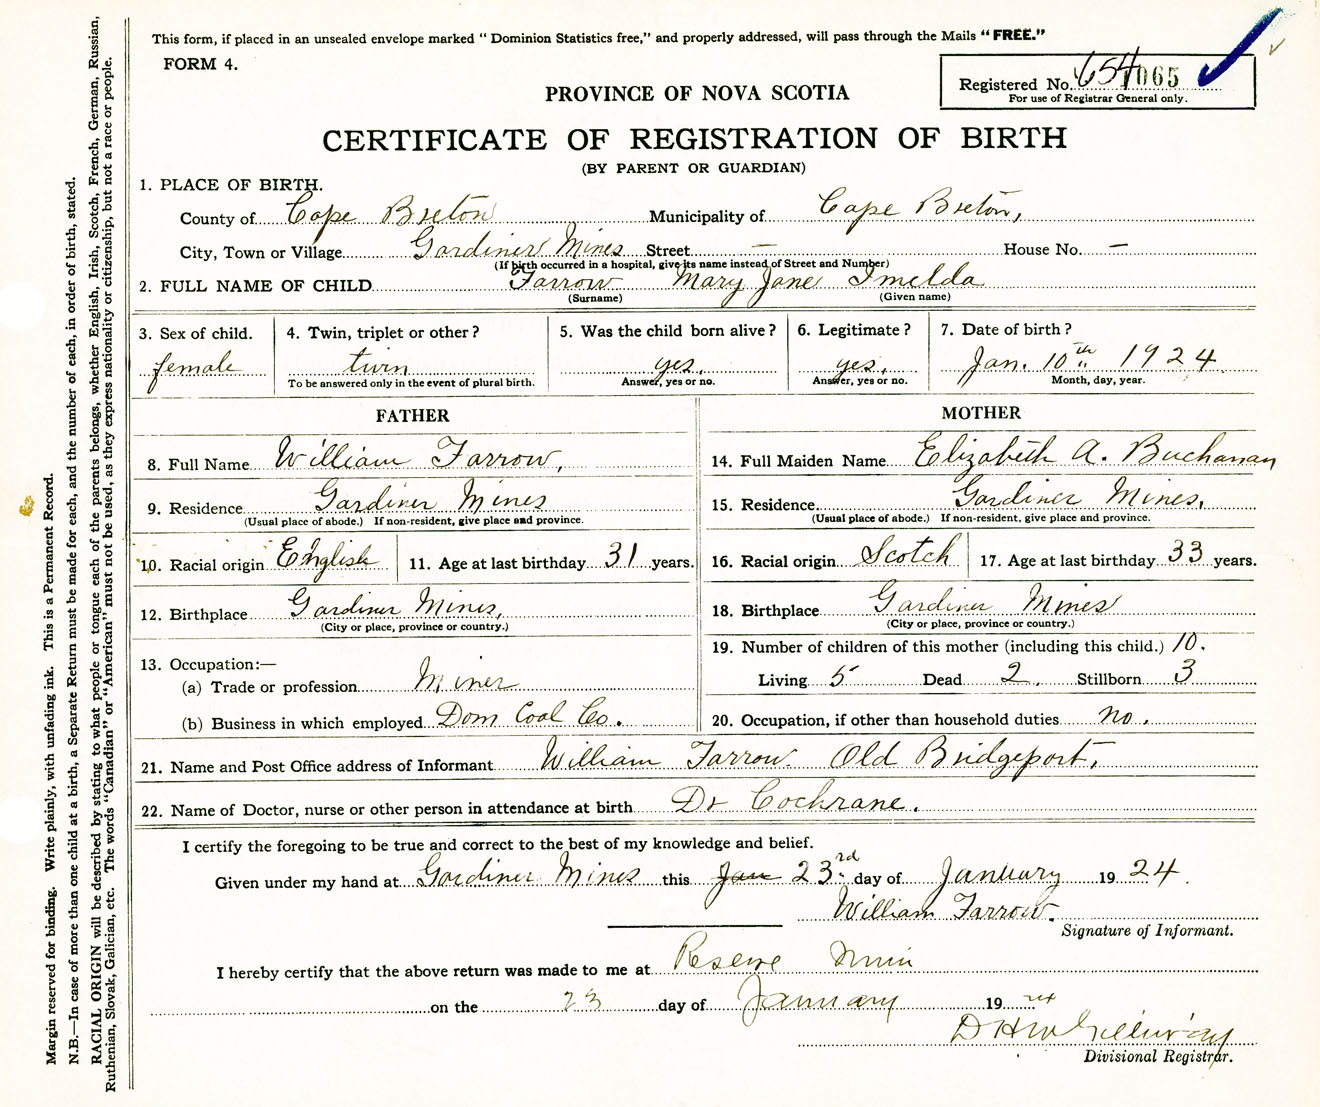 This form, if placed in an unsealed envelope marked “ Dominion Statistics free,” and properly addressed, will pass through the Mails “ FREE.”
FORM 4.
Registered No. 654 065
For use of Registrar General only.
PROVINCE OF NOVA SCOTIA
CERTIFICATE OF REGISTRATION OF BIRTH
(BY PARENT OR GUARDIAN)
1. PLACE OF BIRTH.
County of Cape Breton Municipality of Cape Breton,
City, Town or Village Gardiner Mines Street — House No. —
(If birth occurred in a hospital, give its name instead of Street and Number)
2. FULL NAME OF CHILD Farrow Mary Jane Imelda
(Surname) (Given name)
3. Sex of child. 4. Twin, triplet or other ? 5. Was the child born alive ? 6. Legitimate ? 7. Date of birth ?
female twin yes. yes. Jan. 10th 1924
To be answered only in the event of plural birth. Answer, yes or no. Answer, yes or no. Month, day, year.
FATHER
8. Full Name William Farrow,
9. Residence Gardiner Mines
(Usual place of abode.) If non-resident, give place and province.
10. Racial origin English 11. Age at last birthday 31 years.
12. Birthplace Gardiner Mines,
(City or place, province or country.)
13. Occupation:—
(a) Trade or profession Miner
(b) Business in which employed Dom Coal Co.
MOTHER
14. Full Maiden Name Elizabeth A. Buchanan
15. Residence Gardiner Mines,
(Usual place of abode.) If non-resident, give place and province.
16. Racial origin Scotch 17. Age at last birthday 33 years.
18. Birthplace Gardiner Mines
(City or place, province or country.)
19. Number of children of this mother (including this child.) 10.
Living 5 Dead 2. Stillborn 3
20. Occupation, if other than household duties no.
21. Name and Post Office address of Informant William Farrow. Old Bridgeport,
22. Name of Doctor, nurse or other person in attendance at birth Dr Cochrane.
I certify the foregoing to be true and correct to the best of my knowledge and belief.
Given under my hand at Gardiner Mines this Jan 23rd day of January 1924.
William Farrow.
Signature of Informant.
I hereby certify that the above return was made to me at Reserve
on the 23 day of January 19 24
Divisional Registrar.
Margin reserved for binding. Write plainly, with unfading ink. This is a Permanent Record.
N.B.—In case of more than one child at a birth, a Separate Return must be made for each, and the number of each, in order of birth, stated.
RACIAL ORIGIN will be described by stating to what people or tongue each of the parents belongs, whether English, Irish, Scotch, French, German, Russian,
Ruthenian, Slovak, Galician, etc. The words “Canadian” or “American” must not be used, as they express nationality or citizenship, but not a race or people.